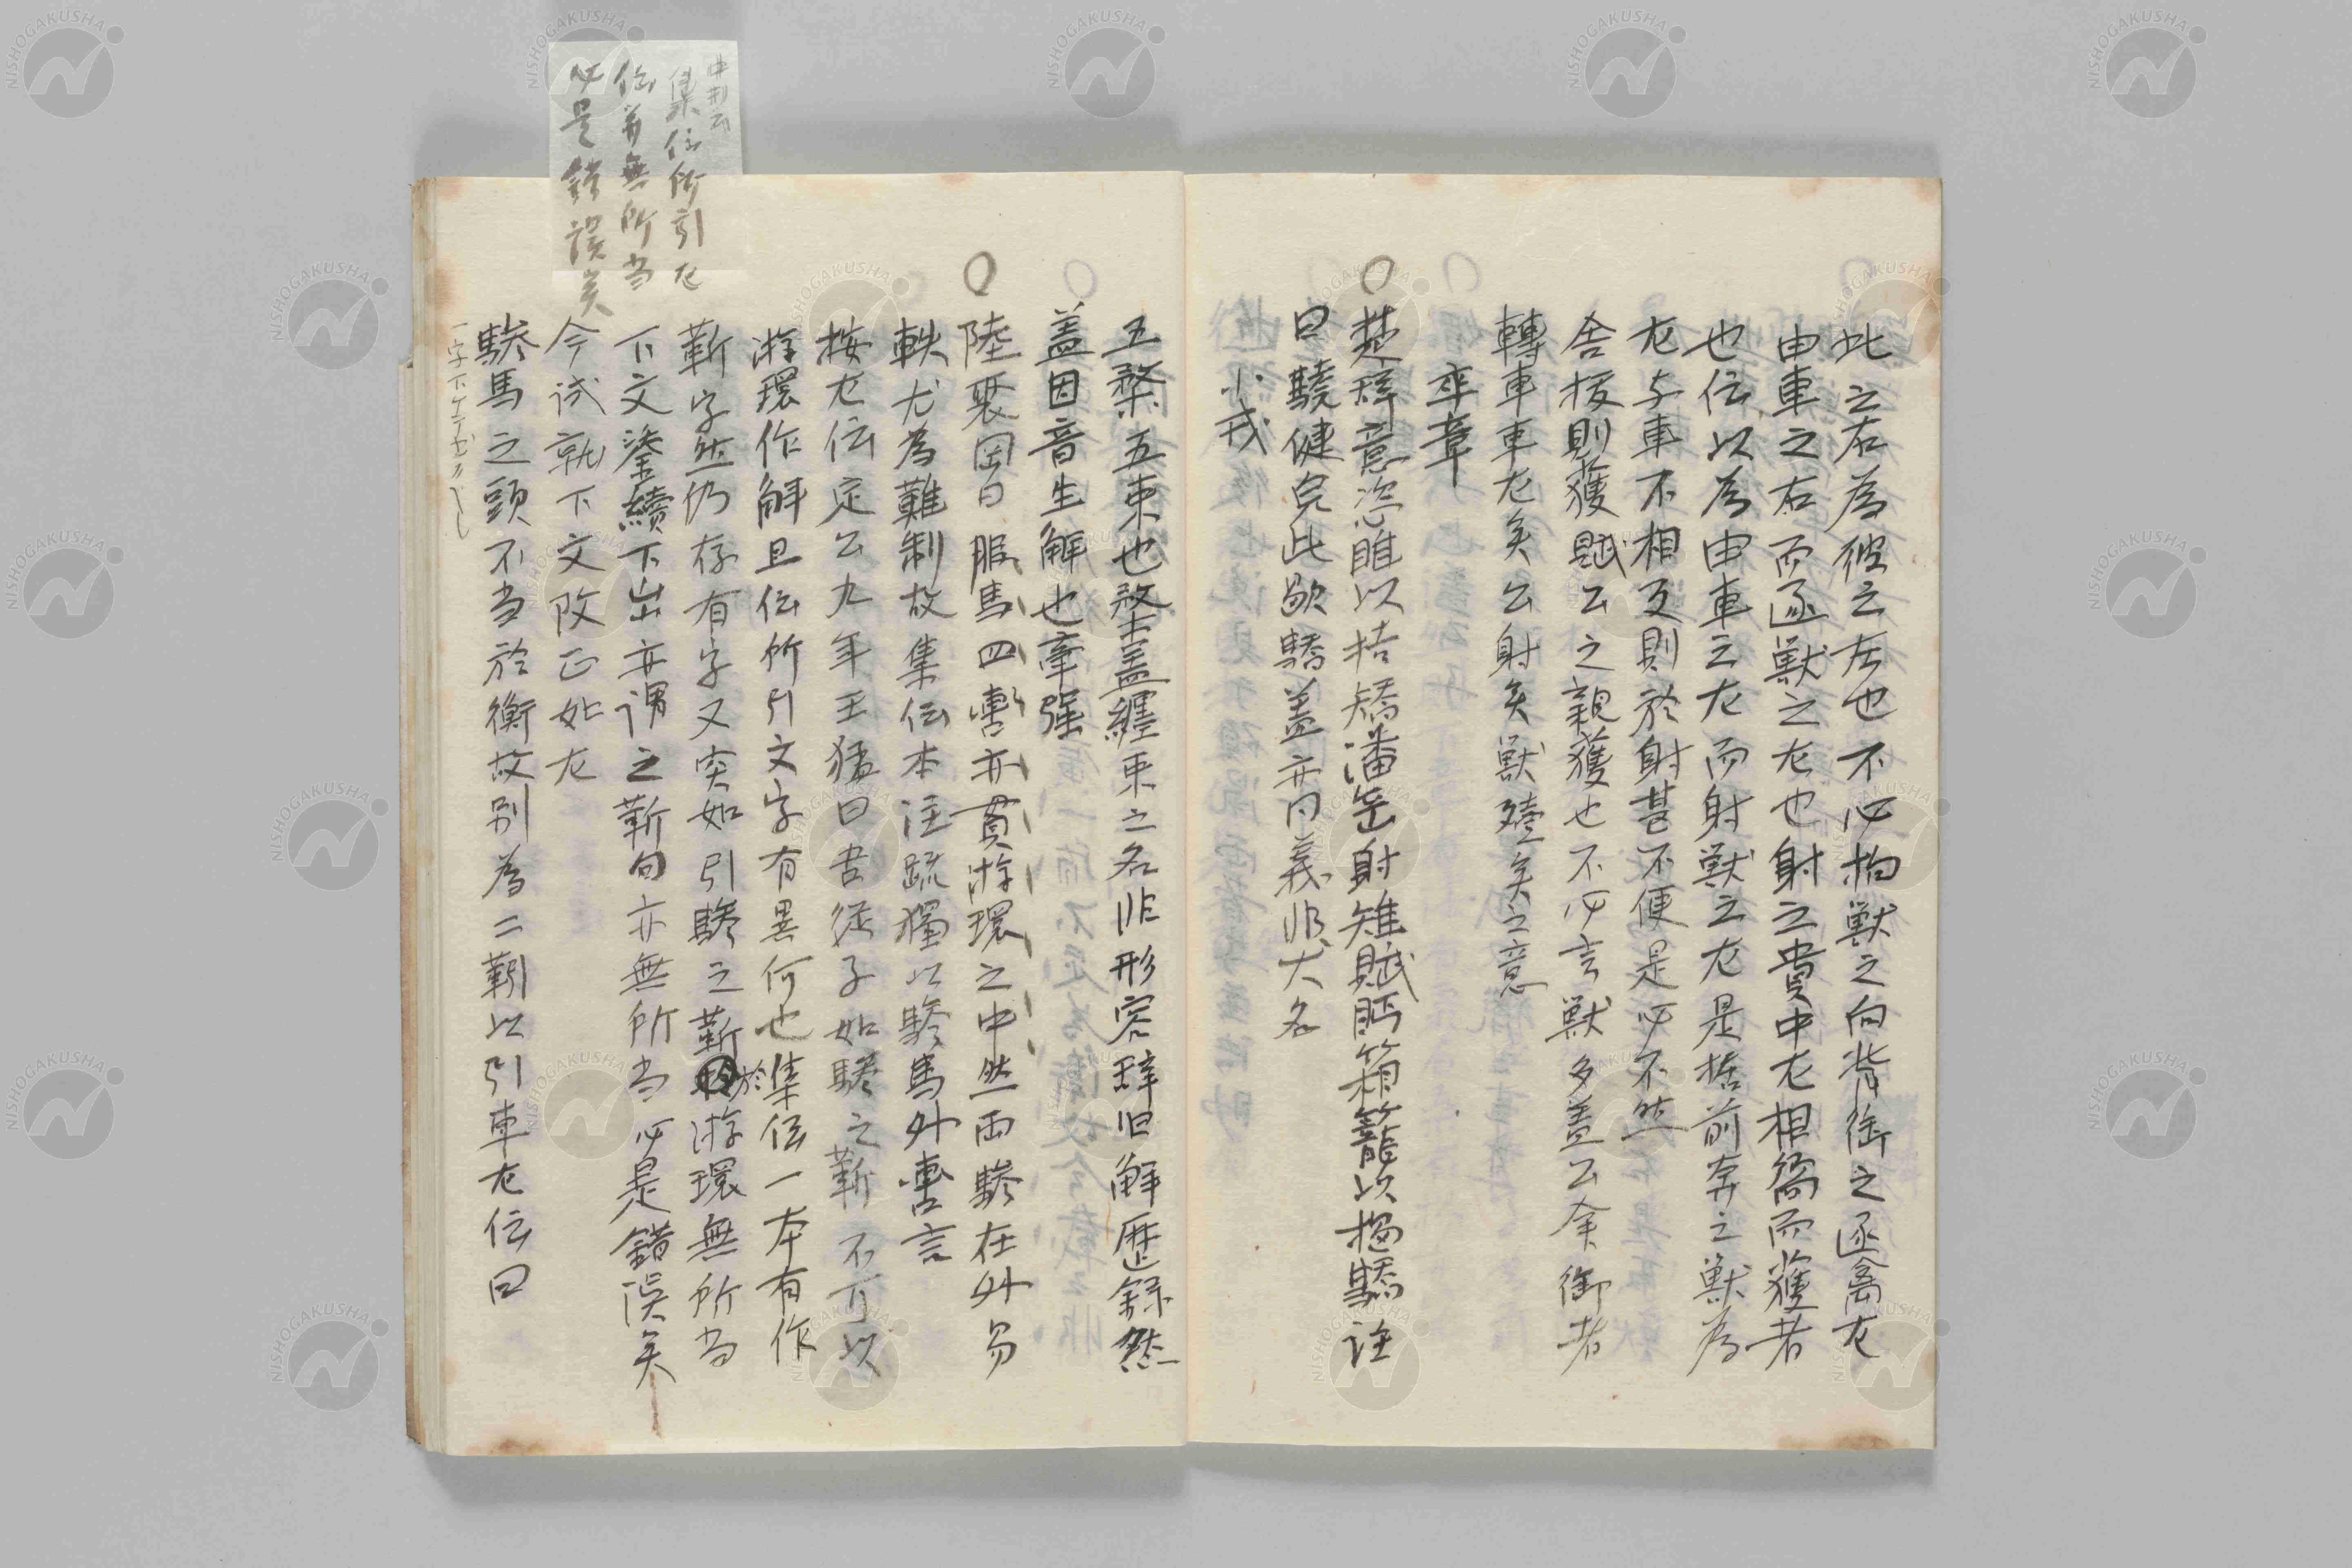 此之右為彼之左也不必拘獣之向背御之逐禽左
由車之右而逐獣之左也射之貴中左相商而獲者
也伝以為由車之左而射獣之左是拠前奔之獣為
左与車不相反則於射甚不便是必不然
舎抜則獲賦公之親獲也不必言獣多蓋公余御者
轉車車左矣公射矣獣殪矣之意
卒章
〇楚辞意恣睢以桔矯潘岳射雉賦眄箱籠以揭驕註
曰驍健皃此歇驕蓋亦同義非犬名
小戎
五楘五束也楘蓋纒束之名非形容辞旧解歴録然
蓋因音生解也牽强
〇陸聚岡曰服馬四轡亦貫游環之中然両驂在外易
軼尤為難制故集伝本注疏獨以驂馬外轡言
按左伝定公九年王猛曰吉従子如驂之靳不可以
游環作解且伝所引文字有異何也集伝一本有作
靳字然仍存有字又突如引驂之靳於游環無所当
下文鋈續下出亦謂之靳句亦無所当必是錯誤矣
今試就下文改正如左
驂馬之頭不当於衡故別為二靷以引車左伝曰
集伝所引左
伝并無所当
必是錯誤矣
NISHOGAKUSHA